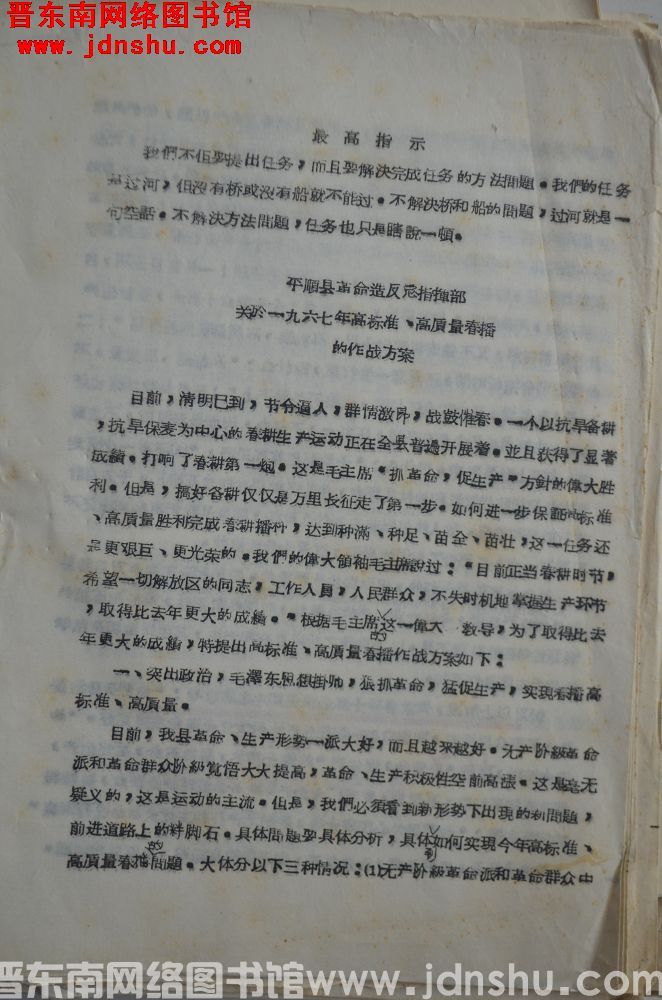 晋东南网络图书馆
www.jdnshu.com
最高指示
我們不但要提出任务，而且要解決完成任务的方法間題。我們的任务
是过河，但沒有桥或沒有船就不能过。不解決桥和船的間題，过河就是一
句空話。不解決方法問題，任务也只是瞎說一頓。
平順县革命造反总指揮部
关於一九六七年高标准、高質量春播
的作战方案
目前，清明巳到，节令逼人，群情激昂，战鼓催春。一个以抗旱备耕
，抗旱保麦为中心的春耕生产运动正在全县普遍开展着。並且获得了显著
成績。打响了春耕第一炮。这是毛主席“抓革命，促生产”方針的偉大胜
利。但是，搞好备耕仅仅是万里长征走了第一步。如何进一步保証高标准
、高質量胜利完成春耕播种，达到种滿、种足、苗全、苗壮，这一任务还
是更艰巨、更光荣的。我們的偉大領袖毛主席說过：“目前正当春耕时节，
希望一切解放区的同志，工作人員，人民群众，不失时机地掌握生产环节
，取得比去年更大的成績。“根据毛主席的这一偉大 教导，为了取得比去
年更大的成績，特提出高标准、高質量春播作战方案如下：
一、突出政治，毛澤东思想掛帅，狠抓革命，猛促生产，实現春播高
标准、高質量。
目前，我县革命、生产形势一派大好，而且越来越好。无产阶級革命
派和革命群众阶級覚悟大大提高，革命、生产积极性空前高漲。这是毫无
疑义的，这是运动的主流。但是，我們必須看到新形势下出現的新間題，
前进道路上的絆脚石。具体問題要具体分析，具体到如何实现今年高标准、
高質量春播的間題。大体分以下三种情况：(1)无产阶級革命派和革命群众中
晋东南网络图书馆www.jdnshu.com